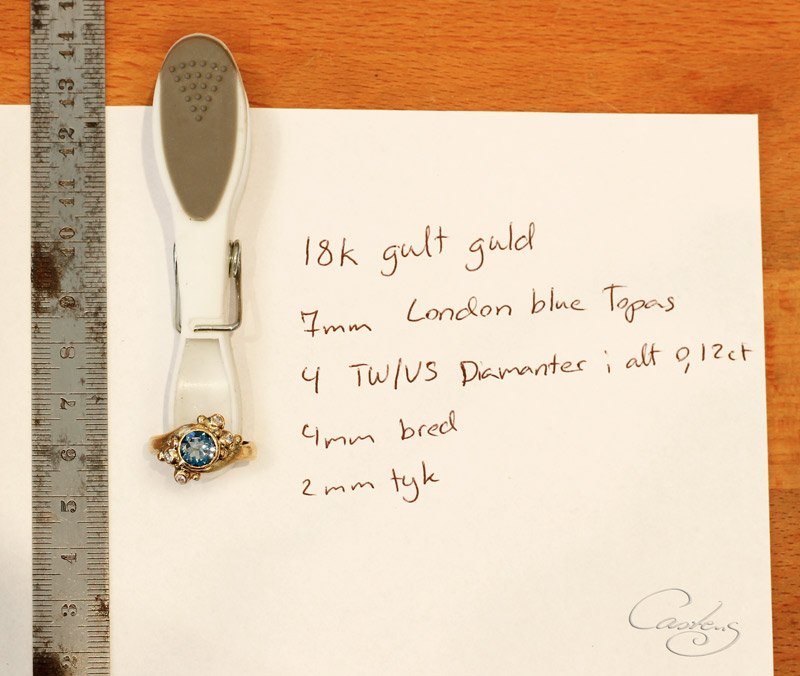 14
13
12
11
10
9
8
7
6
5
4
3
2
18k gult guld
7mm London blue Topas
4 TW/VS Diamanter i alt 0,12ct
4mm bred
2mm tyk
Castens